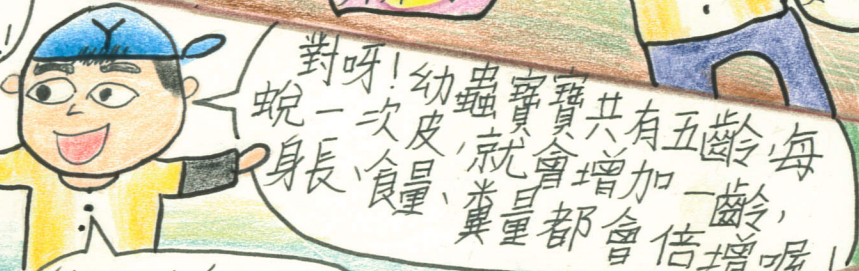 對呀!幼蟲寶寶共有五齡,每
蛻一次皮,就會增加一齡,
身長、食量、糞量都會倍增喔!